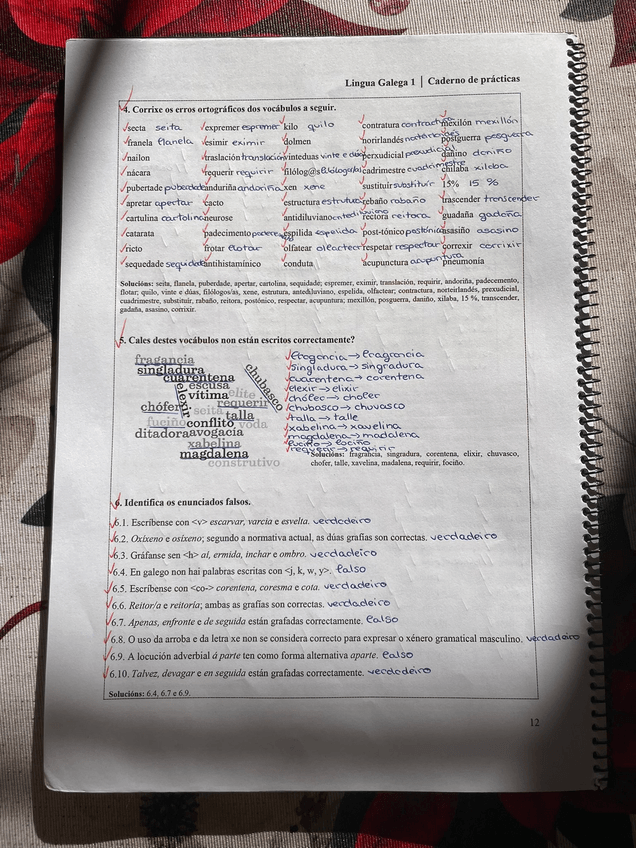 Lingua Galega 1 | Caderno de prácticas
4. Corrixe os erros ortográficos dos vocábulos a seguir.
secta seita expremer espremer kilo quilo contratura contractura mexilón mexillón
franela flanela esimir eximir dolmen norirlandés postguerra posguerra
nailon traslación translación vinteduas vinte e dúas perxudicial prexudicial dañino daniño
nácara requerir requirir filólog@s filólogos/as cadrimestre cuadrimestre chilaba xilaba
pubertade puberdade anduriña andoriña xen xene sustituir substituír 15% 15 %
apretar apertar cacto estructura estrutura rebaño rabaño trascender transcender
cartulina cartolina neurose antidiluviano antediluviano rectora reitora guadaña gadaña
catarata padecimento padecemento espilida espelida post-tónico postónico asasiño asasino
ricto frotar flotar olfatear olfactear respetar respectar correxir corrixir
sequedade sequidade antihistamínico conduta acupunctura acupuntura pneumonía
Solucións: seita, flanela, puberdade, apertar, cartolina, sequidade; espremer, eximir, translación, requirir, andoriña, padecemento,
flotar; quilo, vinte e dúas, filólogos/as, xene, estrutura, antediluviano, espelida, olfactear; contractura, norteirlandés, prexudicial,
cuadrimestre, substituír, rabaño, reitora, postónico, respectar, acupuntura; mexillón, posguerra, daniño, xilaba, 15 %, transcender,
gadaña, asasino, corrixir.
5. Cales destes vocábulos non están escritos correctamente?
fragancia
singladura
cuarentena
escusa
vítima
elexir
chubasco
elite
requerir
chófer
seita
talla
fuciño
conflito
voda
ditadora
avogacía
xabelina
magdalena
construtivo
fragancia → fragrancia
singladura → singradura
cuarentena → corentena
elexir → elixir
chófer → chofer
chubasco → chuvasco
talla → talle
xabelina → xavelina
magdalena → madalena
fuciño → fociño
requerir → requirir
Solucións: fragrancia, singradura, corentena, elixir, chuvasco,
chofer, talle, xavelina, madalena, requirir, fociño.
6. Identifica os enunciados falsos.
6.1. Escríbense con <v> escarvar, varcia e esvelta. verdadeiro
6.2. Oxíxeno e osíxeno; segundo a normativa actual, as dúas grafías son correctas. verdadeiro
6.3. Gráfanse sen <h> aí, ermida, inchar e ombro. verdadeiro
6.4. En galego non hai palabras escritas con <j, k, w, y>. falso
6.5. Escríbense con <co-> corentena, coresma e cota. verdadeiro
6.6. Reitor/a e reitoría; ambas as grafías son correctas. verdadeiro
6.7. Apenas, enfronte e de seguida están grafados correctamente. falso
6.8. O uso da arroba e da letra xe non se considera correcto para expresar o xénero gramatical masculino. verdadeiro
6.9. A locución adverbial á parte ten como forma alternativa aparte. falso
6.10. Talvez, devagar e en seguida están grafadas correctamente. verdadeiro
Solucións: 6.4, 6.7 e 6.9.
12